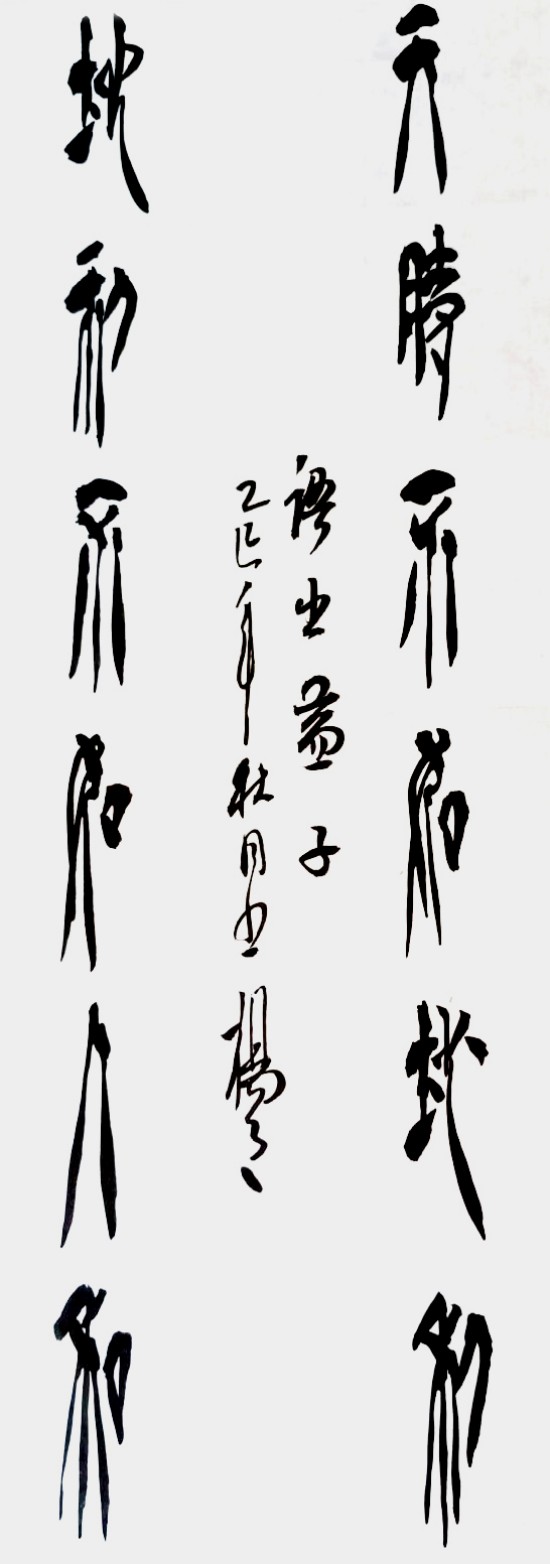 天時不如地利
語出孟子
乙巳年秋月书 楊
地利不如人和